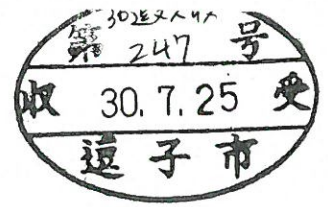 30逗
第 247 号
収 30.7.25 受
逗子市